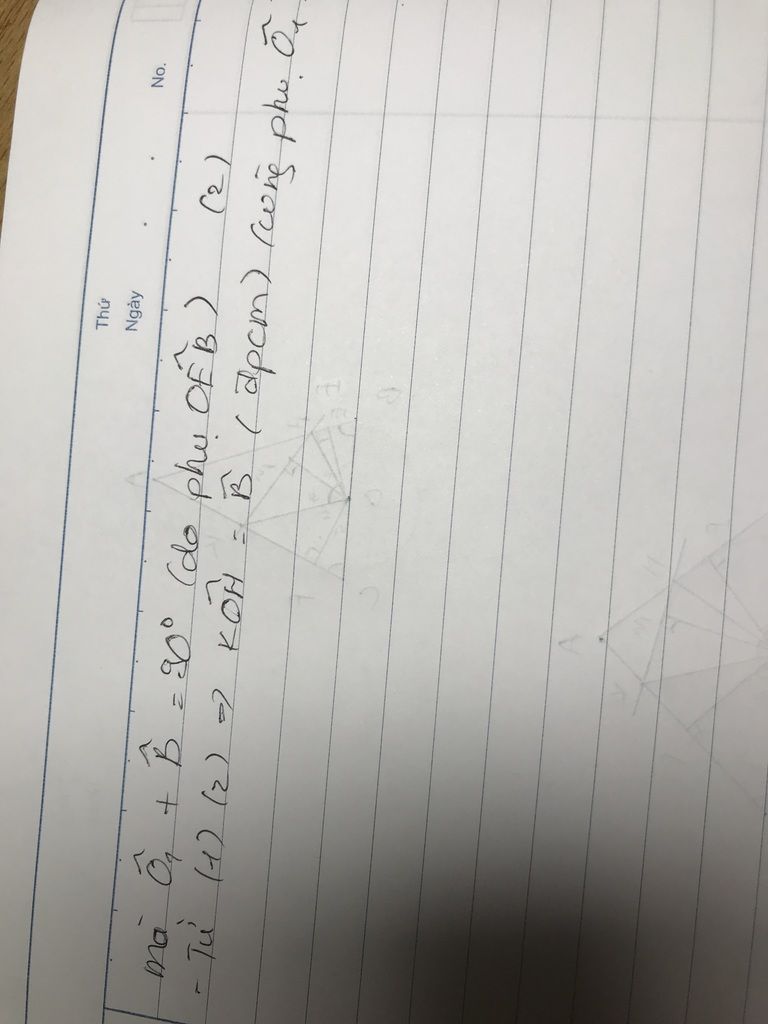 Thứ
Ngày
No.
mà Ô₁ + B̂ = 90° (do phụ OÊB) (2)
- Từ (1) (2) => KÔH = B̂ (đpcm) (cùng phụ Ô₁